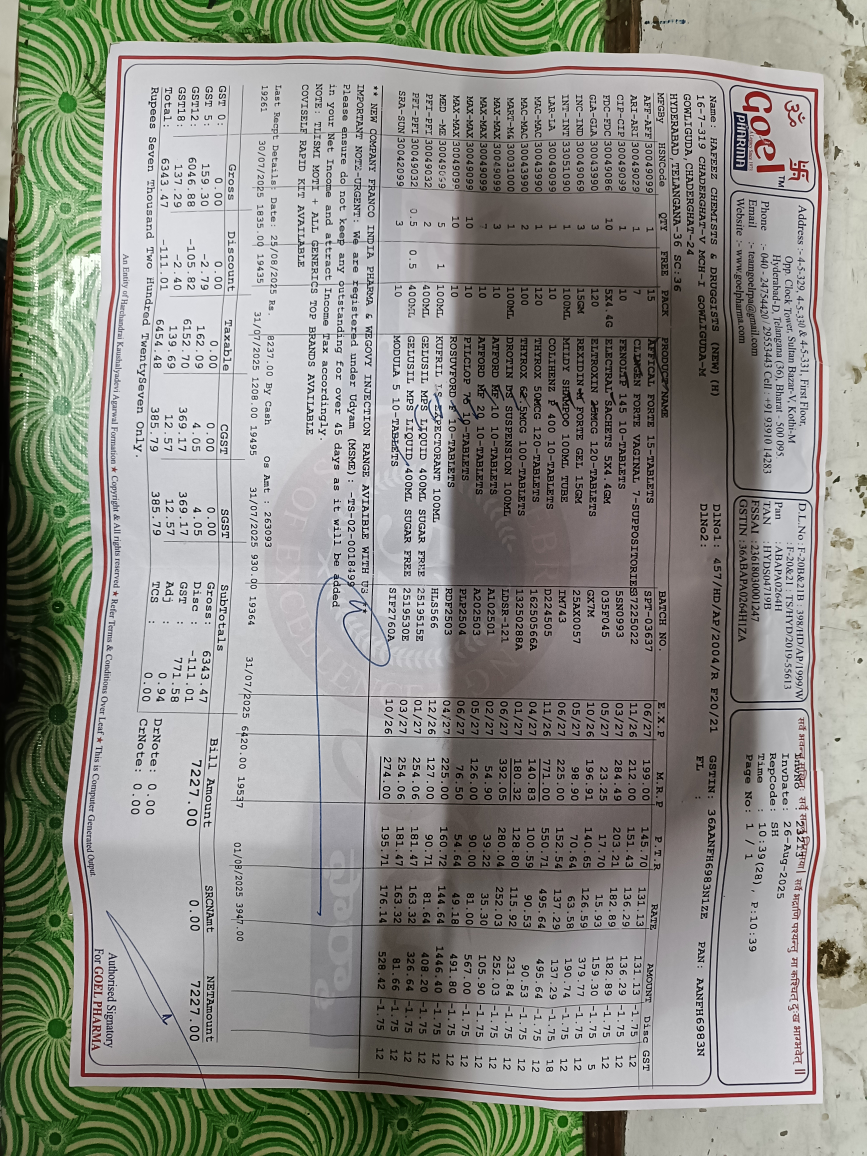 ॐ 卐
Goel™
PHARMA
Address :- 4-5-329, 4-5-330 & 4-5-331, First Floor,
Opp. Clock Tower, Sultan Bazar-V, Kothi-M
Hyderabad-D, Telangana (36), Bharat - 500 095.
Phone :- 040 - 24754420 / 29553443 Cell : +91 93910 14283
Email :- teamgoelrpa@gmail.com
Website :- www.goelpharma.com
D.L.No : F-20B&21B : 398/HD/AP/1999/W
: F-20&21 : TS/HYD/2019-55613
Pan : ABAPA0264H
TAN : HYDS04719B
FSSAI : 23618030001247
GSTIN : 36ABAPA0264H1ZA
InvDate: 26-Aug-2025
RepCode: SH
Time : 10:39(28), P:10:39
Page No: 1 / 1
Name: HAFEEZ CHEMISTS & DRUGGISTS (NEW)(H)
16-7-319 CHADERGHAT-V MCH-I GOWLIGUDA-M
GOWLIGUDA, CHADERGHAT-24
HYDERABAD, TELANGANA-36 SC:36
DlNo1: 457/HD/AP/2004/R F20/21
DlNo2:
GSTIN: 36AANFH6983N1ZE PAN: AANFH6983N
FL :
MFGBy HSNCode QTY FREE PACK PRODUCT NAME BATCH NO. E.X.P M.R.P P.T.R RATE AMOUNT Disc GST
AFF-AFF 30049099 1 15 AFFICAL FORTE 15-TABLETS SFT-03637 06/27 199.00 145.70 131.13 131.13 -1.75 12
ARI-ARI 30049029 1 7 FORTE VAGINAL 7-SUPPOSITORIES 7225022 11/26 212.00 151.43 136.29 136.29 -1.75 12
CIP-CIP 30049039 1 10 FENOLIP 145 10-TABLETS 5SN0993 03/27 284.49 203.21 182.89 182.89 -1.75 12
FDC-FDC 30049086 10 5X4.4G ELECTRAL SACHETS 5X4.4GM 035F045 05/27 23.25 17.70 15.93 159.30 -1.75 5
GLA-GLA 30043990 3 120 ELTROXIN 25MCG 120-TABLETS GX7M 10/26 196.91 140.65 126.59 379.77 -1.75 12
INC-IND 30049069 3 15GM REXIDIN M FORTE GEL 15GM 25AX0057 05/27 98.90 70.64 63.58 190.74 -1.75 12
INT-INT 33051090 1 100ML MILDY SHAMPOO 100ML TUBE IM743 06/27 225.00 152.54 137.29 137.29 -1.75 18
LAR-LA 30049099 1 10 COLIHENZ P 400 10-TABLETS D224505 11/26 771.00 550.71 495.64 495.64 -1.75 12
MAC-MAC 30043990 1 120 THYROX 50MCG 120-TABLETS 16250566A 04/27 140.83 100.59 90.53 90.53 -1.75 12
MAC-MAC 30043990 2 100 THYROX 62.5MCG 100-TABLETS 13250288A 01/27 180.32 128.80 115.92 231.84 -1.75 12
MART-MK 30031000 1 100ML DROTIN DS SUSPENSION 100ML LDSR-121 06/27 392.05 280.04 252.03 252.03 -1.75 12
MAX-MAX 30049099 3 10 ATFORD MF 10 10-TABLETS A102501 02/27 54.90 39.22 35.30 105.90 -1.75 12
MAX-MAX 30049099 7 10 ATFORD MF 20 10-TABLETS A202503 05/27 126.00 90.00 81.00 567.00 -1.75 12
MAX-MAX 30049099 10 10 PILCLOP 75 10-TABLETS PLP2504 06/27 76.50 54.64 49.18 491.80 -1.75 12
MAX-MAX 30049099 10 10 ROSUVFORD F 10-TABLETS RDF2503 04/27 225.00 160.72 144.64 1446.40 -1.75 12
MED -ME 30049039 5 1 100ML KUFRIL LS EXPECTORANT 100ML HLS566 12/26 127.00 90.71 81.64 408.20 -1.75 12
PFI-PFI 30049032 2 400ML GELUSIL MPS LIQUID 400ML SUGAR FREE 2519515E 01/27 254.06 181.47 163.32 326.64 -1.75 12
PFI-PFI 30049032 0.5 0.5 400ML GELUSIL MPS LIQUID 400ML SUGAR FREE 2519530E 03/27 254.06 181.47 163.32 81.66 -1.75 12
SRA-SUN 30042099 3 10 MODULA 5 10-TABLETS SIF2760A 10/26 274.00 195.71 176.14 528.42 -1.75 12
** NEW COMPANY FRANCO INDIA PHARMA & WEGOVY INJECTION RANGE AVTAIBLE WITH US **
IMPORTANT NOTE-URGENT: We are registered under Udyam (MSME): -TS-02-0018499
Please ensure do not keep any outstanding for over 45 days as it will be added
in your Net Income and attract Income Tax accordingly
NOTE: TLISMI MOTI + ALL GENERICS TOP BRANDS AVAILABLE
COVISELF RAPID KIT AVAILABLE
Last Recpt Details: Date: 25/08/2025 Rs. 8237.00 By Cash Os Amt : 263093
19261 30/07/2025 1835.00 19435 31/07/2025 1208.00 19495 31/07/2025 930.00 19364 31/07/2025 6420.00 19537 01/08/2025 3947.00
Gross Discount Taxable CGST SGST SubTotals Bill Amount SRCNAmt NETAmount
GST 0: 0.00 0.00 0.00 0.00 0.00 Gross: 6343.47 7227.00 0.00 7227.00
GST 5: 159.30 -2.79 162.09 4.05 4.05 Disc : -111.01
GST12: 6046.88 -105.82 6152.70 369.17 369.17 GST : 771.58
GST18: 137.29 -2.40 139.69 12.57 12.57 Adj : 0.94 DrNote: 0.00
Total: 6343.47 -111.01 6454.48 385.79 385.79 TCS : 0.00 CrNote: 0.00
Rupees Seven Thousand Two Hundred TwentySeven Only.
Authorised Signatory
For GOEL PHARMA
An Entity of Harchandrai Kaushalyadevi Agarwal Formation ★ Copyright & All rights reserved ★ Refer Terms & Conditions Over Leaf ★ This is Computer Generated Output